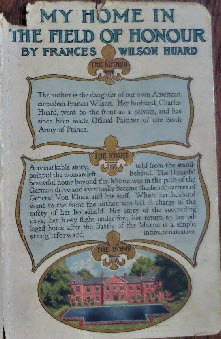 MY HOME IN
THE FIELD OF HONOUR
BY FRANCES WILSON HUARD
THE AUTHOR
The author is the daughter of our own American
comedian Francis Wilson. Her husband, Charles
Huard, went to the front as a private, and has
since been made Official Painter of the Sixth
Army of France.
THE STORY
A remarkable story told from the stand
point of the woman left behind. The Huards'
beautiful home beyond the Marne was in the path of the
German drive and eventually became the headquarters of
General Von Kluck and his staff. When her husband
went to the front the author was left in charge of the
safety of her household. Her story of the succeeding
days, her brave flight under fire, her return to her
home after the Battle of the Marne is a simple
straightforward
THE HOME